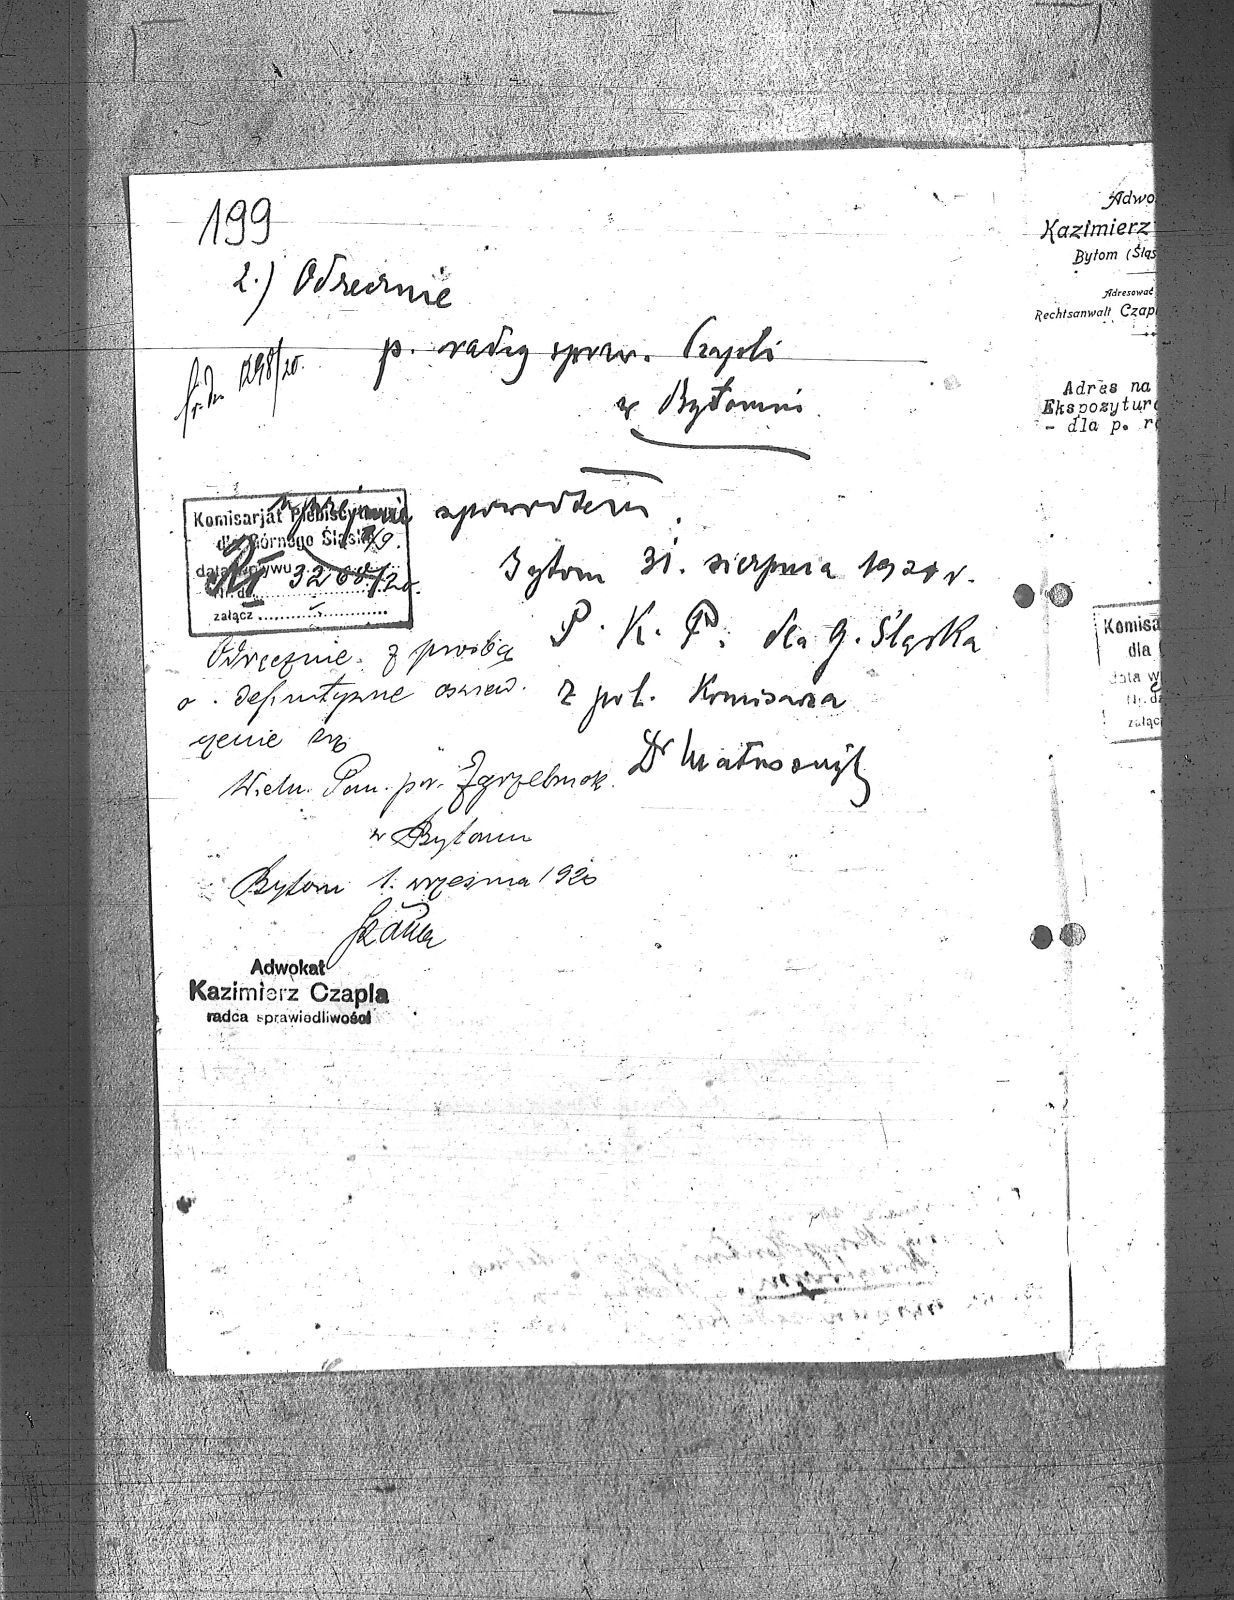 199
2.) Odręcznie
p. radcy spraw. Czapli
w Bytomiu
1298/20.
uprzejmie zpowrotem.
Komisarjat Plebiscytowy
dla Górnego Śląska
data wpływu
Nr. dz. 3268/20.
załącz
Bytom 31. sierpnia 1920 r.
P. K. P. dla G. Śląska
z pol. Komisarza
Dr
Odręcznie z prośbą
o definitywne oświad-
czenie się
Wielm. Pan
w Bytomiu
Bytom 1. września 1920
Adwokat
Kazimierz Czapla
radca sprawiedliwości
Adwo
Kazimierz
Bytom (Śląs
Adresować
Rechtsanwalt Czapl
Adres na
Ekspozytura
- dla p. r
Komisa
dla
data w
Nr. dz
załącz